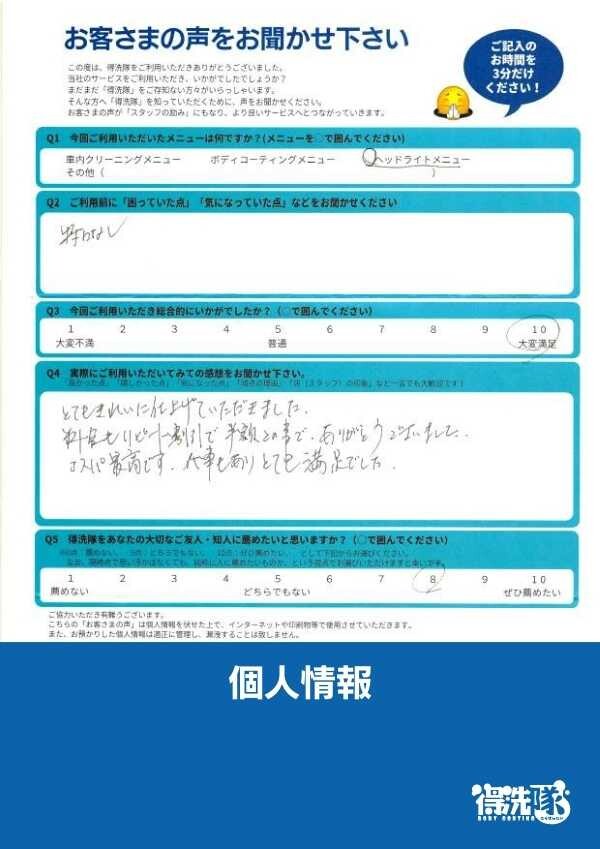 お客さまの声をお聞かせ下さい
ご記入の
お時間を
3分だけ
ください！
この度は、得洗隊をご利用いただきありがとうございました。
当社のサービスをご利用いただき、いかがでしたでしょうか？
まだまだ「得洗隊」をご存知ない方々がいらっしゃいます。
そんな方へ「得洗隊」を知っていただくために、声をお聞かせください。
お客さまの声が「スタッフの励み」にもなり、より良いサービスへとつながっていきます。
Q1 今回ご利用いただいたメニューは何ですか？(メニューを○で囲んでください)
車内クリーニングメニュー ボディコーティングメニュー ヘッドライトメニュー
その他（ ）
Q2 ご利用前に「困っていた点」「気になっていた点」などをお聞かせください
特になし
Q3 今回ご利用いただき総合的にいかがでしたか？（○で囲んでください）
1 2 3 4 5 6 7 8 9 10
大変不満 普通 大変満足
Q4 実際にご利用いただいてみての感想をお聞かせ下さい。
「良かった点」「嬉しかった点」「気になった点」「採点の理由」「店（スタッフ）の印象」など一言でも大歓迎です！
とてもきれいに仕上げていただきました。
料金もリピート割引で半額との事で、ありがとうございました。
コスパ最高です。代車もありとても満足でした。
Q5 得洗隊をあなたの大切なご友人・知人に薦めたいと思いますか？（○で囲んでください）
※0点：薦めない、 5点：どちらでもない、 10点：ぜひ薦めたい、 として下記からお選びください。
1 2 3 4 5 6 7 8 9 10
薦めない どちらでもない ぜひ薦めたい
ご協力いただき有難うございます。
こちらの「お客さまの声」は個人情報を伏せた上で、インターネットや印刷物等で使用させていただきます。
また、お預かりした個人情報は適正に管理し、漏洩することは致しません。
個人情報
得洗隊
BODY COATING